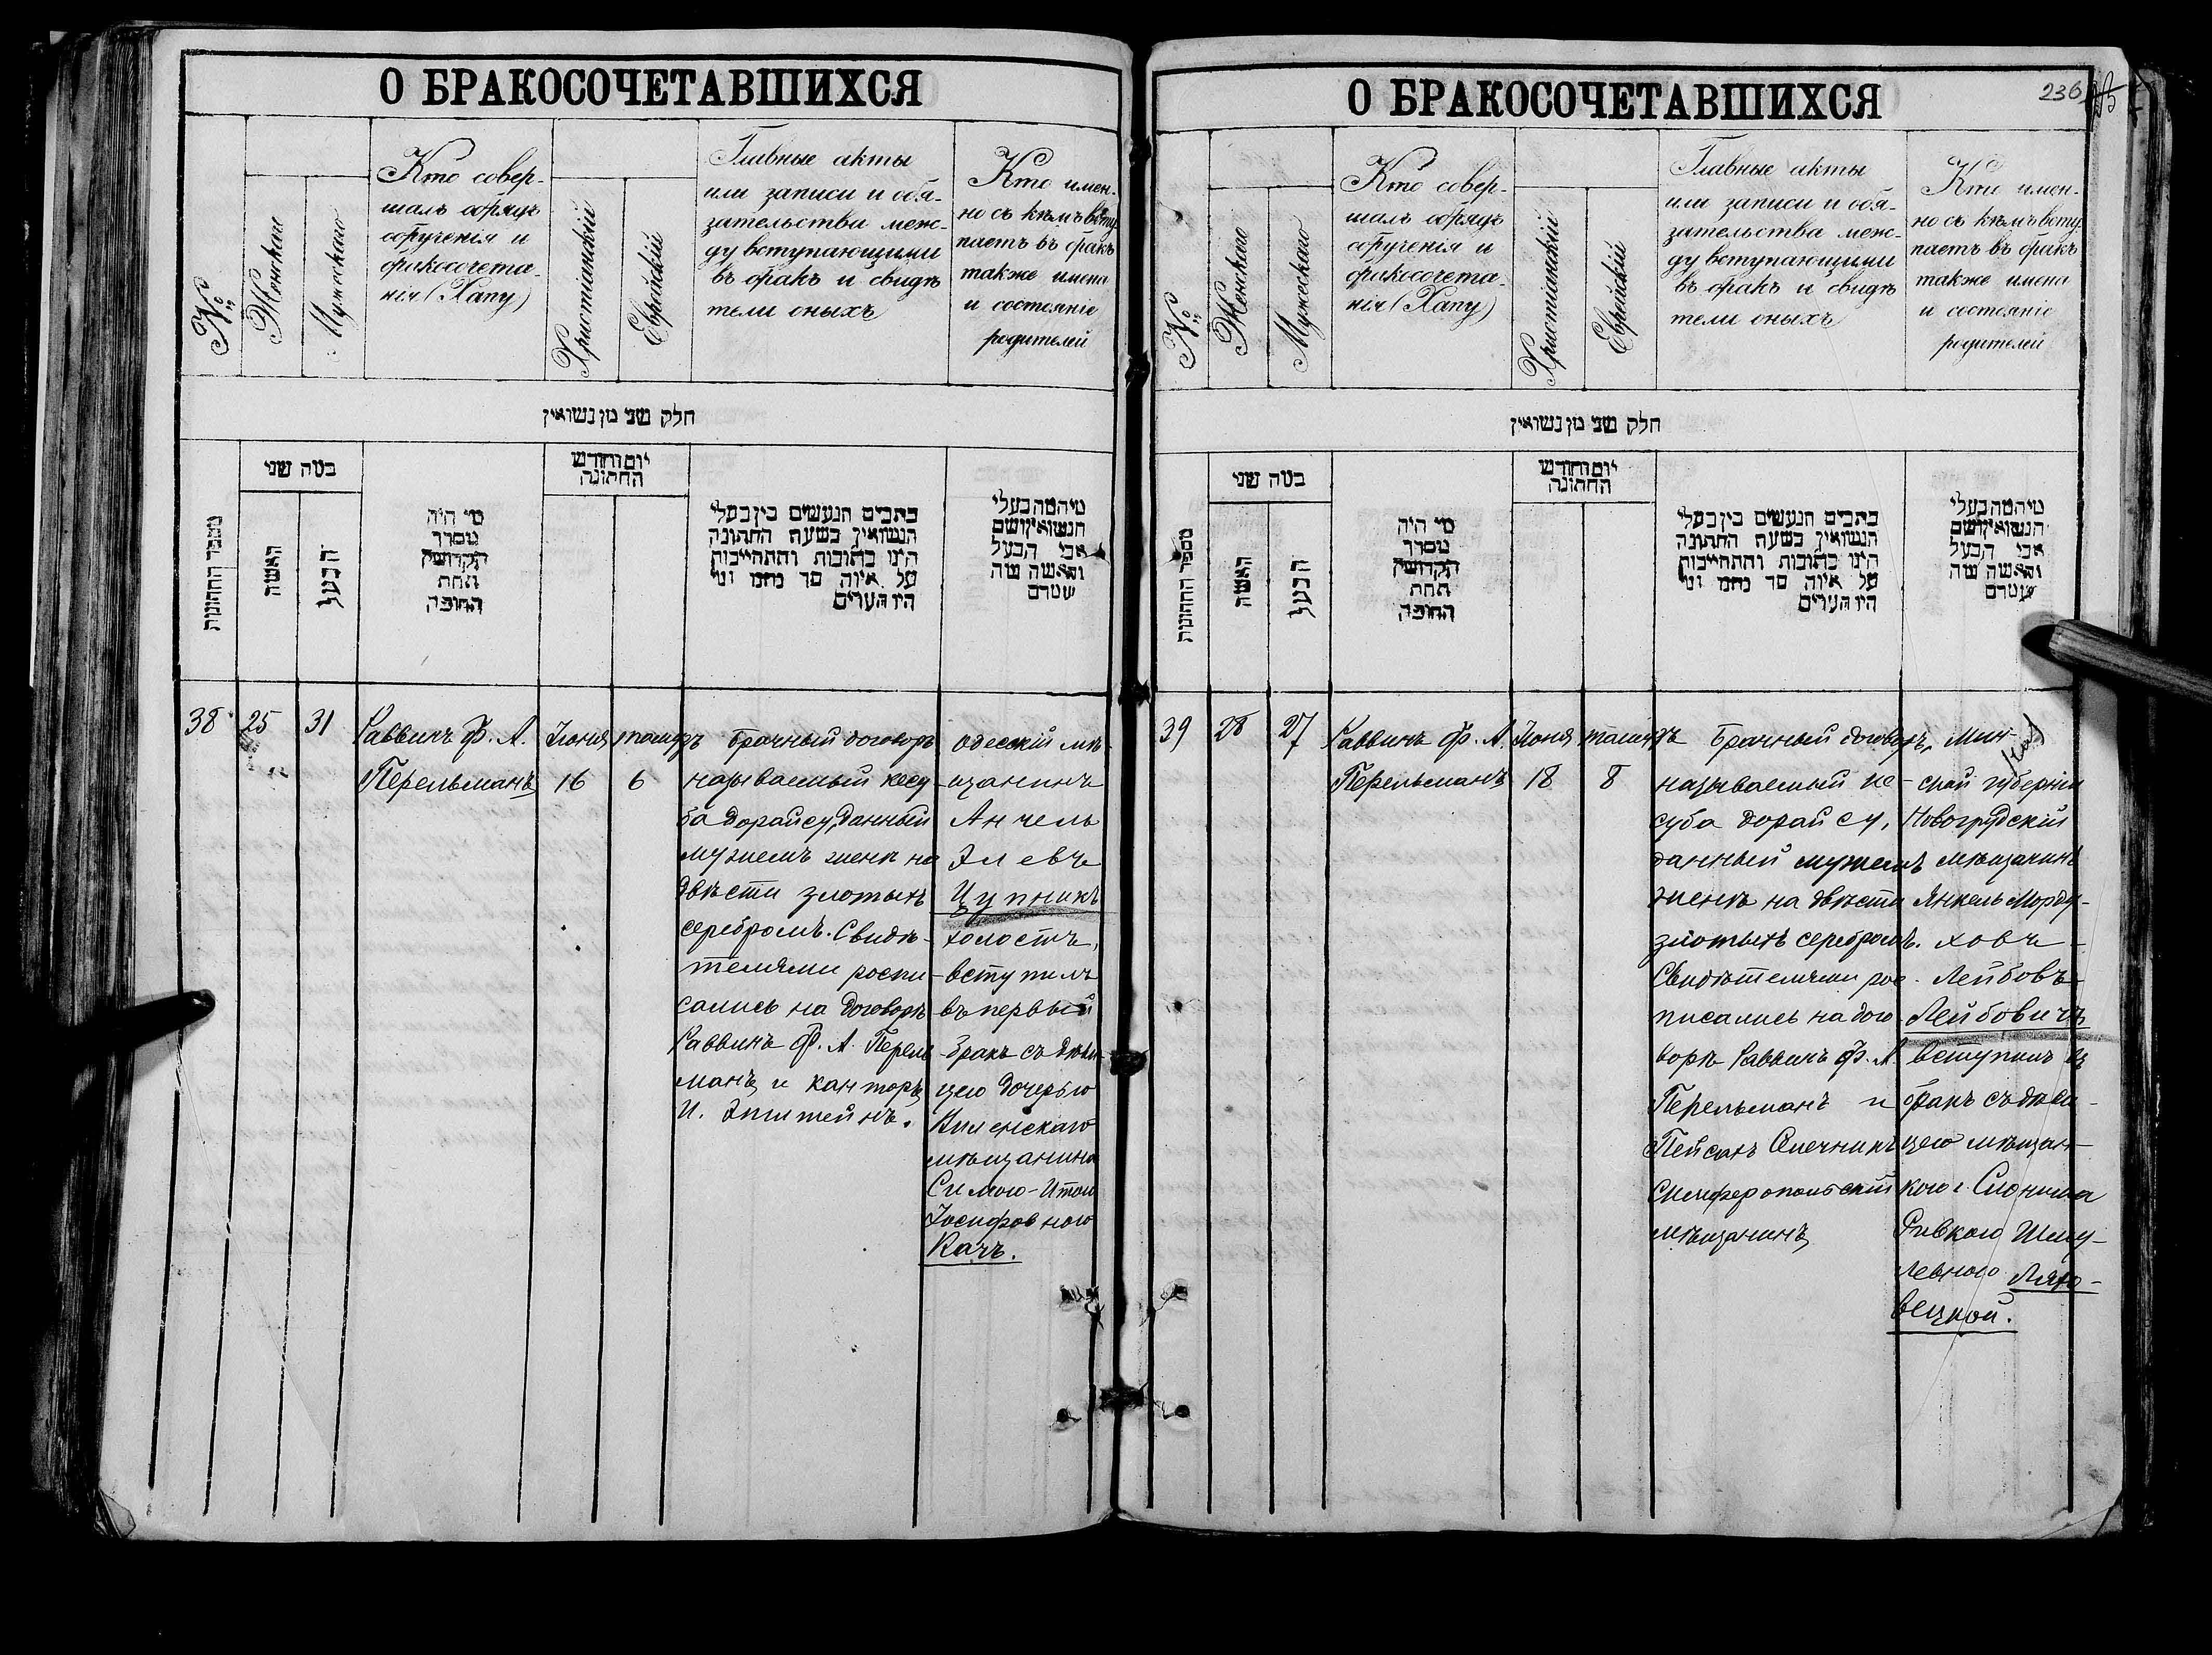 О БРАКОСОЧЕТАВШИХСЯ
№
Женскаго
Мужескаго
Кто совер-
шалъ обрядъ
обрученія и
бракосочета-
нія (Хапу)
Христіанскій
Еврейскій
Главные акты
или записи и обя-
зательства меж-
ду вступающими
въ бракъ и свидѣ
тели оныхъ
Кто имен-
но съ кѣмъ всту
паетъ въ бракъ
также имена
и состояніе
родителей
חלק שני מן נשואין
מספר החתונות
כמה שני
האשה
הבעל
מי היה
מסדר
הקדושין
תחת
החופה
יום וחודש
החתונה
כתבים הנעשים בין בעלי
הנשואין בשעה החתונה
היינו כתובות והתחייבות
על איזה סך נחנו ומי
היו העדים
מיהמה בעלי
הנשואין ושם
אבי הבעל
והאשה מה
שטרם
38
25
31
Раввинъ Ф. А.
Перельманъ
Іюня
16
тамузъ
6
брачный договоръ
называемый кесу
ба дорайсу, данный
мужемъ женѣ на
двѣсти злотыхъ
серебромъ. Свидѣ-
телями роспи-
сались на договорѣ
Раввинъ Ф. А. Перель
манъ и канторъ
И. Эпштейнъ.
Одесскій мѣ-
щанинъ
Анчель
Элевъ
Цупникъ
холостъ,
вступилъ
въ первый
бракъ съ дѣви-
цею дочерью
Виленскаго
мѣщанина
Симою-Итою
Іосифовною
Качъ.
О БРАКОСОЧЕТАВШИХСЯ
236
№
Женскаго
Мужескаго
Кто совер-
шалъ обрядъ
обрученія и
бракосочета-
нія (Хапу)
Христіанскій
Еврейскій
Главные акты
или записи и обя-
зательства меж-
ду вступающими
въ бракъ и свидѣ
тели оныхъ
Кто имен-
но съ кѣмъ всту
паетъ въ бракъ
также имена
и состояніе
родителей
חלק שני מן נשואין
מספר החתונות
כמה שני
האשה
הבעל
מי היה
מסדר
הקדושין
תחת
החופה
יום וחודש
החתונה
כתבים הנעשים בין בעלי
הנשואין בשעה החתונה
היינו כתובות והתחייבות
על איזה סך נחנו ומי
היו העדים
מיהמה בעלי
הנשואין ושם
אבי הבעל
והאשה מה
שטרם
39
28
27
Раввинъ Ф. А.
Перельманъ
Іюня
18
тамузъ
8
Брачный договоръ,
называемый ке-
суба дорайсу,
данный мужемъ
женѣ на двѣсти
злотыхъ серебромъ.
Свидѣтелями рос-
писались на дого-
ворѣ Раввинъ Ф. А.
Перельманъ и
Пейсахъ Спечникъ
Симферопольскій
мѣщанинъ
Мин-
ской губерніи
Новогрудскій
мѣщанинъ
Янкель Морду-
ховъ
Лейбовъ
Лейбовичъ
вступилъ въ
бракъ съ дѣви-
цею мѣщан-
кою г. Слонима
Ривкою Шму-
левною Ляхо-
вецкой.